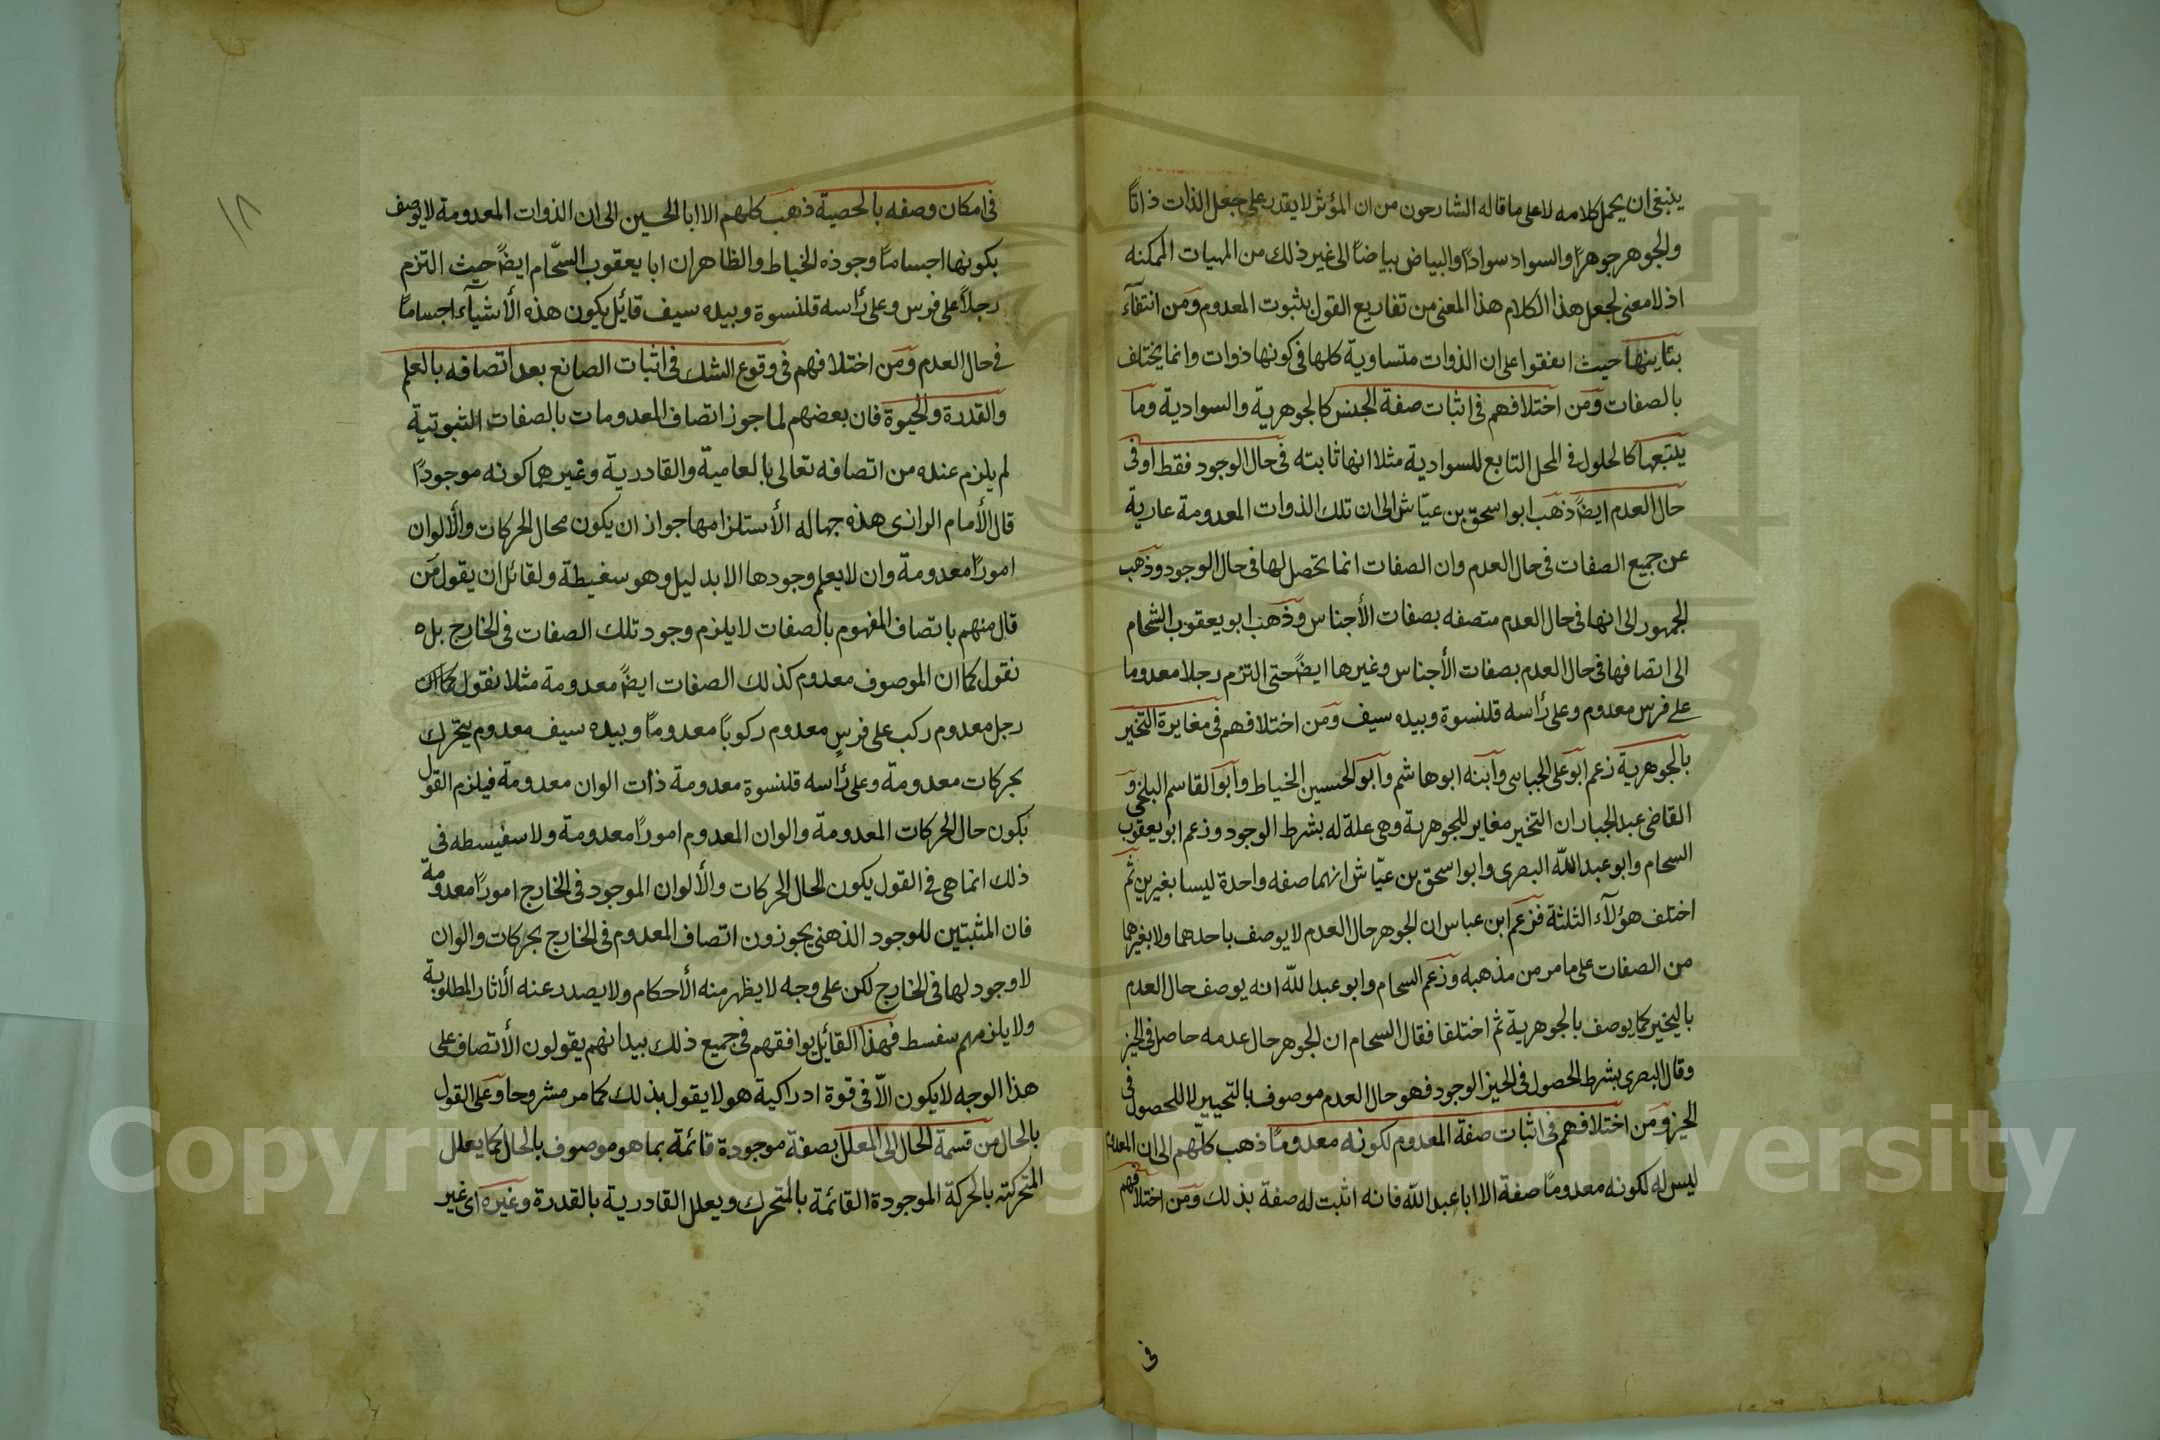 ينبغى ان يحمل كلامه لا على ما قاله الشارحون من ان المؤثر لا يقدر على جعل الذات ذاتًا
والجوهر جوهرًا والسواد سوادًا والبياض بياضًا الى غير ذلك من المهيات الممكنه
اذ لا معنى لجعل هذا الكلام هذا المعنى من تفاريع القول بثبوت المعدوم ومن انتفآء
حيث اتفقوا على ان الذوات متساوية كلها فى كونها ذوات وانما يختلف
بالصفات ومن اختلافهم فى اثبات صفة الجنس كالجوهرية والسوادية وما
يتبعها كالحلول فى المحل التابع للسوادية مثلا انها ثابته فى حال الوجود فقط او فى
حال العدم ايضًا ذهب ابو اسحق بن عيّاش الى ان تلك الذوات المعدومة عارية
عن جميع الصفات فى حال العدم وان الصفات انما تحصل لها فى حال الوجود وذهب
الجمهور الى انها فى حال العدم متصفه بصفات الأجناس وذهب ابو يعقوب الشحام
الى اتصافها فى حال العدم بصفات الأجناس وغيرها ايضًا حتى التزم رجلا معدوما
على فرس معدوم وعلى رأسه قلنسوة وبيده سيف ومن اختلافهم فى مغايرة التحيز
بالجوهرية زعم ابو على الجبائى وابنه ابو هاشم وابو الحسين الخياط وابو القاسم البلخى و
القاضى عبد الجبار ان التخير مغاير للجوهرية وهى علة له بشرط الوجود وزعم ابو يعقوب
السحام وابو عبد اللّه البصرى وابو اسحق بن عيّاش انهما صفه واحدة ليسا بغيرين ثم
اختلف هؤلآء الثلثة فزعم ابن عباس ان الجوهر حال العدم لا يوصف باحدهما ولا بغيرهما
من الصفات على ما مر من مذهبه وزعم السحام وابو عبد اللّه انه يوصف حال العدم
بالتخير كما يوصف بالجوهرية ثم اختلفا فقال السحام ان الجوهر حال عدمه حاصل فى الحيز
وقال البصرى بشرط الحصول فى الحيز الوجود فهو حال العدم موصوف بالتحييز لا للحصول فى
الحيز ومن اختلافهم فى اثبات صفة المعدوم لكونه معدومًا ذهب كلّهم الى ان المعدوم
ليس له لكونه معدومًا صفة الا ابا عبد اللّه فانه اثبت له صفة بذلك ومن اختلافهم
فى
١٨
فى امكان وصفه بالجسمية ذهب كلهم الا ابا الحسين الى ان الذوات المعدومة لا يوصف
بكونها اجسامًا وجوزه الخياط والظاهر ان ابا يعقوب السحّام ايضًا حيث التزم
رجلًا على فرس وعلى رأسه قلنسوة وبيده سيف قائل يكون هذه الأشيآء اجسامًا
فى حال العدم ومن اختلافهم فى وقوع الشك فى اثبات الصانع بعد اتصافه بالعلم
والقدرة والحيوة فان بعضهم لما جوز اتصاف المعدومات بالصفات الثبوتية
لم يلزم عنده من اتصافه تعالى بالعالمية والقادرية وغيرهما كونه موجودًا
قال الأمام الرازى هذه جهاله الأستلزامها جواز ان يكون محال الحركات والألوان
امورًا معدومة وان لا يعلم وجودها الا بدليل وهو سفيطة ولقائل ان يقول من
قال منهم باتصاف المفهوم بالصفات لا يلزم وجود تلك الصفات فى الخارج بل ه
نقول كما ان الموصوف معدوم كذلك الصفات ايضًا معدومة مثلا نقول كما ان
رجل معدوم ركب على فرسٍ معدوم ركوبًا معدومًا وبيده سيف معدوم يتحرك
بحركات معدومة وعلى رأسه قلنسوة معدومة ذات الوان معدومة فيلزم القول
بكون حال الحركات المعدومة والوان المعدوم امورًا معدومة ولا سفيسطه فى
ذلك انما هى فى القول يكون المحال الحركات والألوان الموجود فى الخارج امورًا معدومة
فان المثبتين للوجود الذهنى يجوزون اتصاف المعدوم فى الخارج بحركات والوان
لا وجود لها فى الخارج لكن على وجه لا يظهر منه الأحكام ولا يصدر عنه الأثار المطلوبة
ولا يلزمهم سفسط فهذا القائل يوافقهم فى جميع ذلك بيد انهم يقولون الأتصاف على
هذا الوجه لا يكون الّا فى قوة ادراكية هو لا يقول بذلك كما مر مشروحا وعلى القول
بالحال من قسمة الحال الى المعلل بصفة موجودة قائمة بما هو موصوف بالحال كما يعلل
المتحركته بالحركة الموجودة القائمة بالمتحرك ويعلل القادرية بالقدرة وغيره اى غير
Copyright © King Saud University